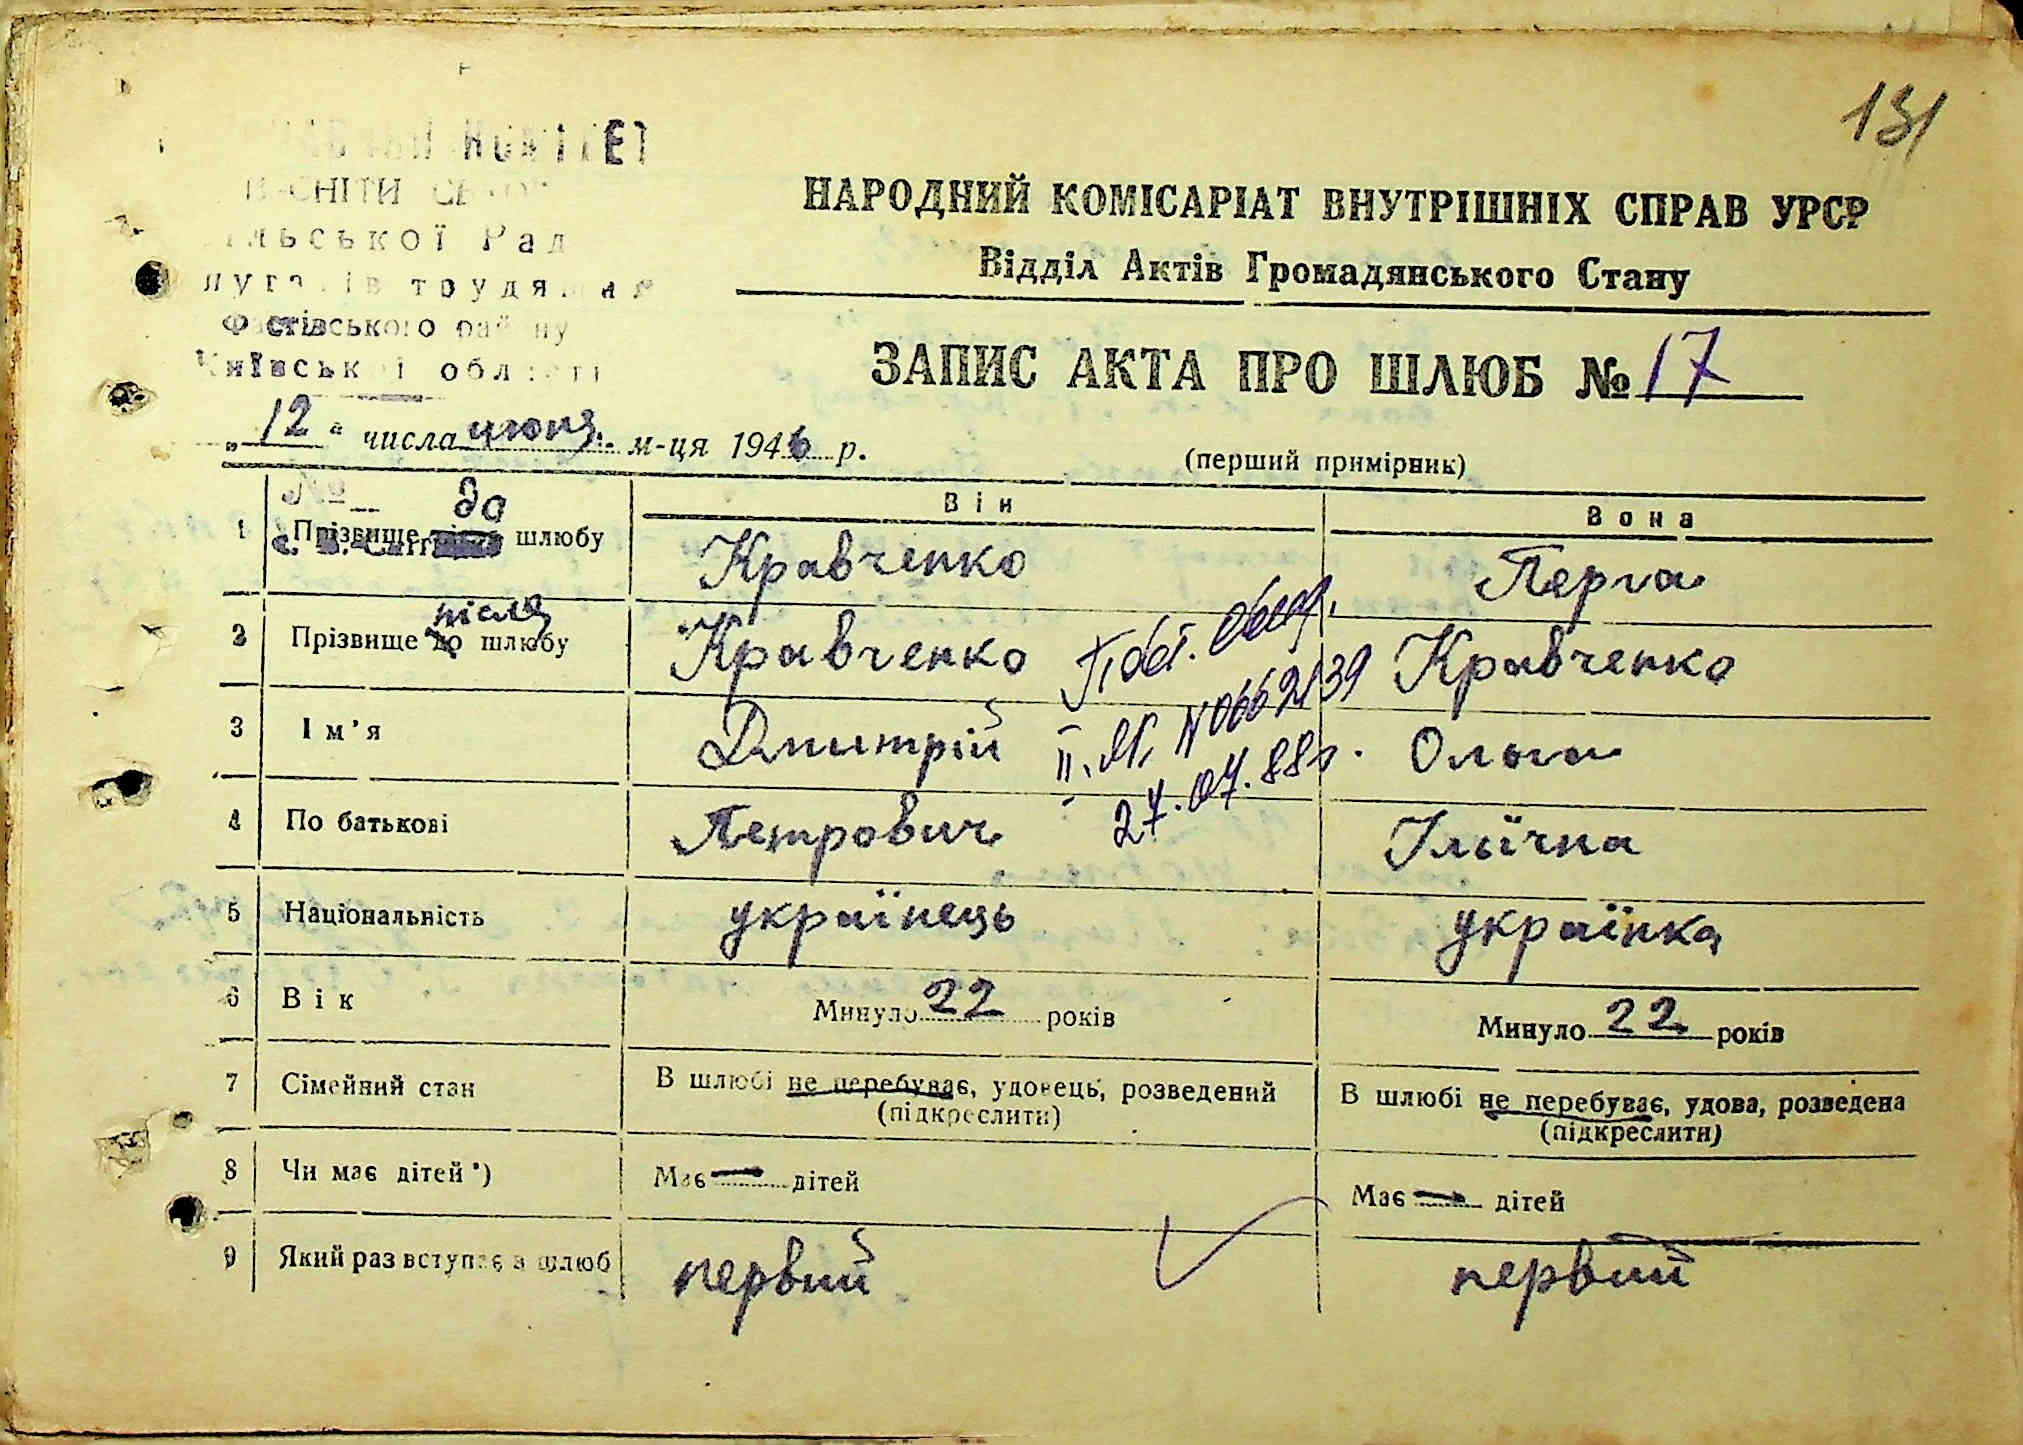 131
КОМІТЕТ
СНІТИ
сільської Рад
трудящих
Фастівського району
Київської області
НАРОДНИЙ КОМІСАРІАТ ВНУТРІШНІХ СПРАВ УРСР
Відділ Актів Громадянського Стану
ЗАПИС АКТА ПРО ШЛЮБ № 17
„12“ числа июня м-ця 1946 р.
(перший примірник)
Він
Вона
№
1 Прізвище до шлюбу Кравченко Перга
2 Прізвище після до шлюбу Кравченко Кравченко
3 Ім'я Дмитрій Ольга
4 По батькові Петрович Ілїчна
Повт.
II
27.07.88г.
5 Національність українець українка
6 Вік Минуло 22 років Минуло 22 років
7 Сімейний стан В шлюбі не перебуває, удовець, розведений В шлюбі не перебуває, удова, розведена
(підкреслити) (підкреслити)
8 Чи має дітей*) Має — дітей Має — дітей
9 Який раз вступає в шлюб первий первий